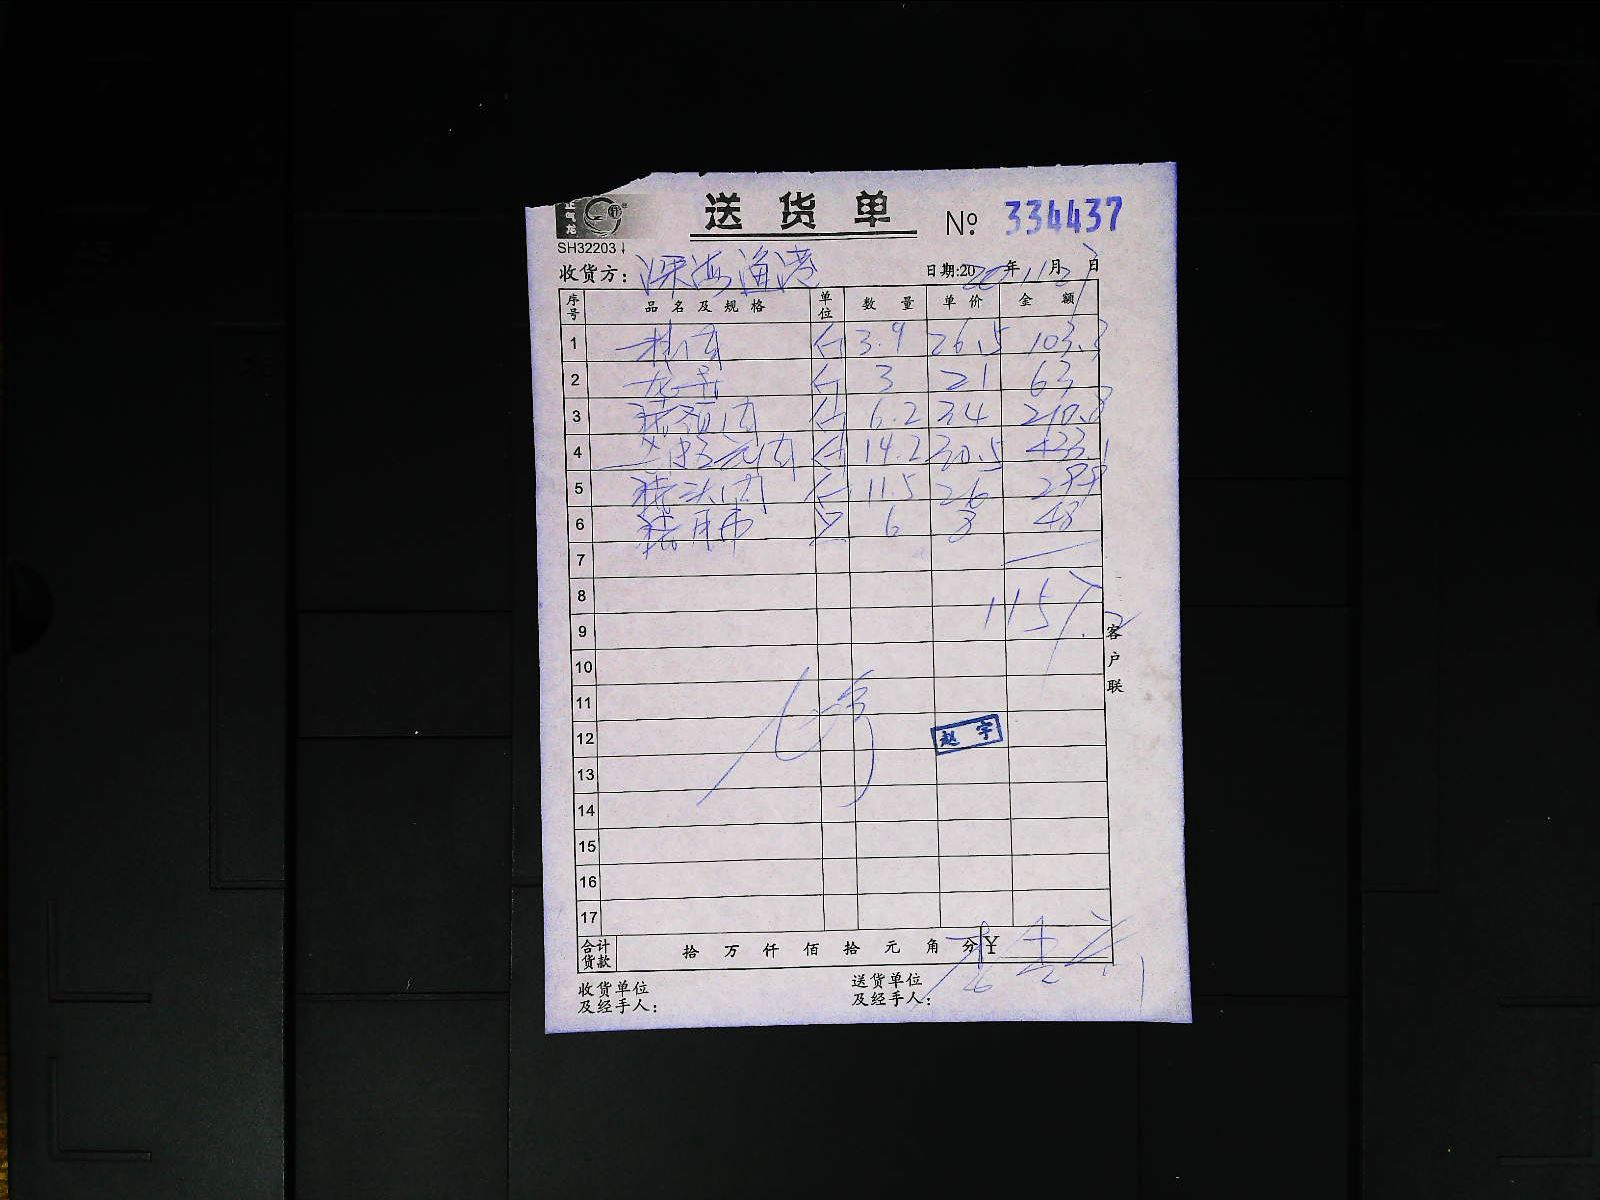 正气龙
送货单 № 334437
SH32203
收货方：深海渔港 日期:20 20年11月2日
序号 品名及规格 单位 数量 单价 金额
1 斤 3.9 26.5 103.3
2 龙骨 斤 3 21 63
3 猪颈肉 斤 6.2 34 210.8
4 元肉 斤 14.2 30.5 433.1
5 猪头肉 斤 11.5 26 299
6 猪肺 只 6 8 48
7
8
9 1157.2
10
11
12 赵宇
13
14
15
16
17
客户联
合计货款 拾万仟佰拾元角分 ¥
收货单位及经手人： 送货单位及经手人：